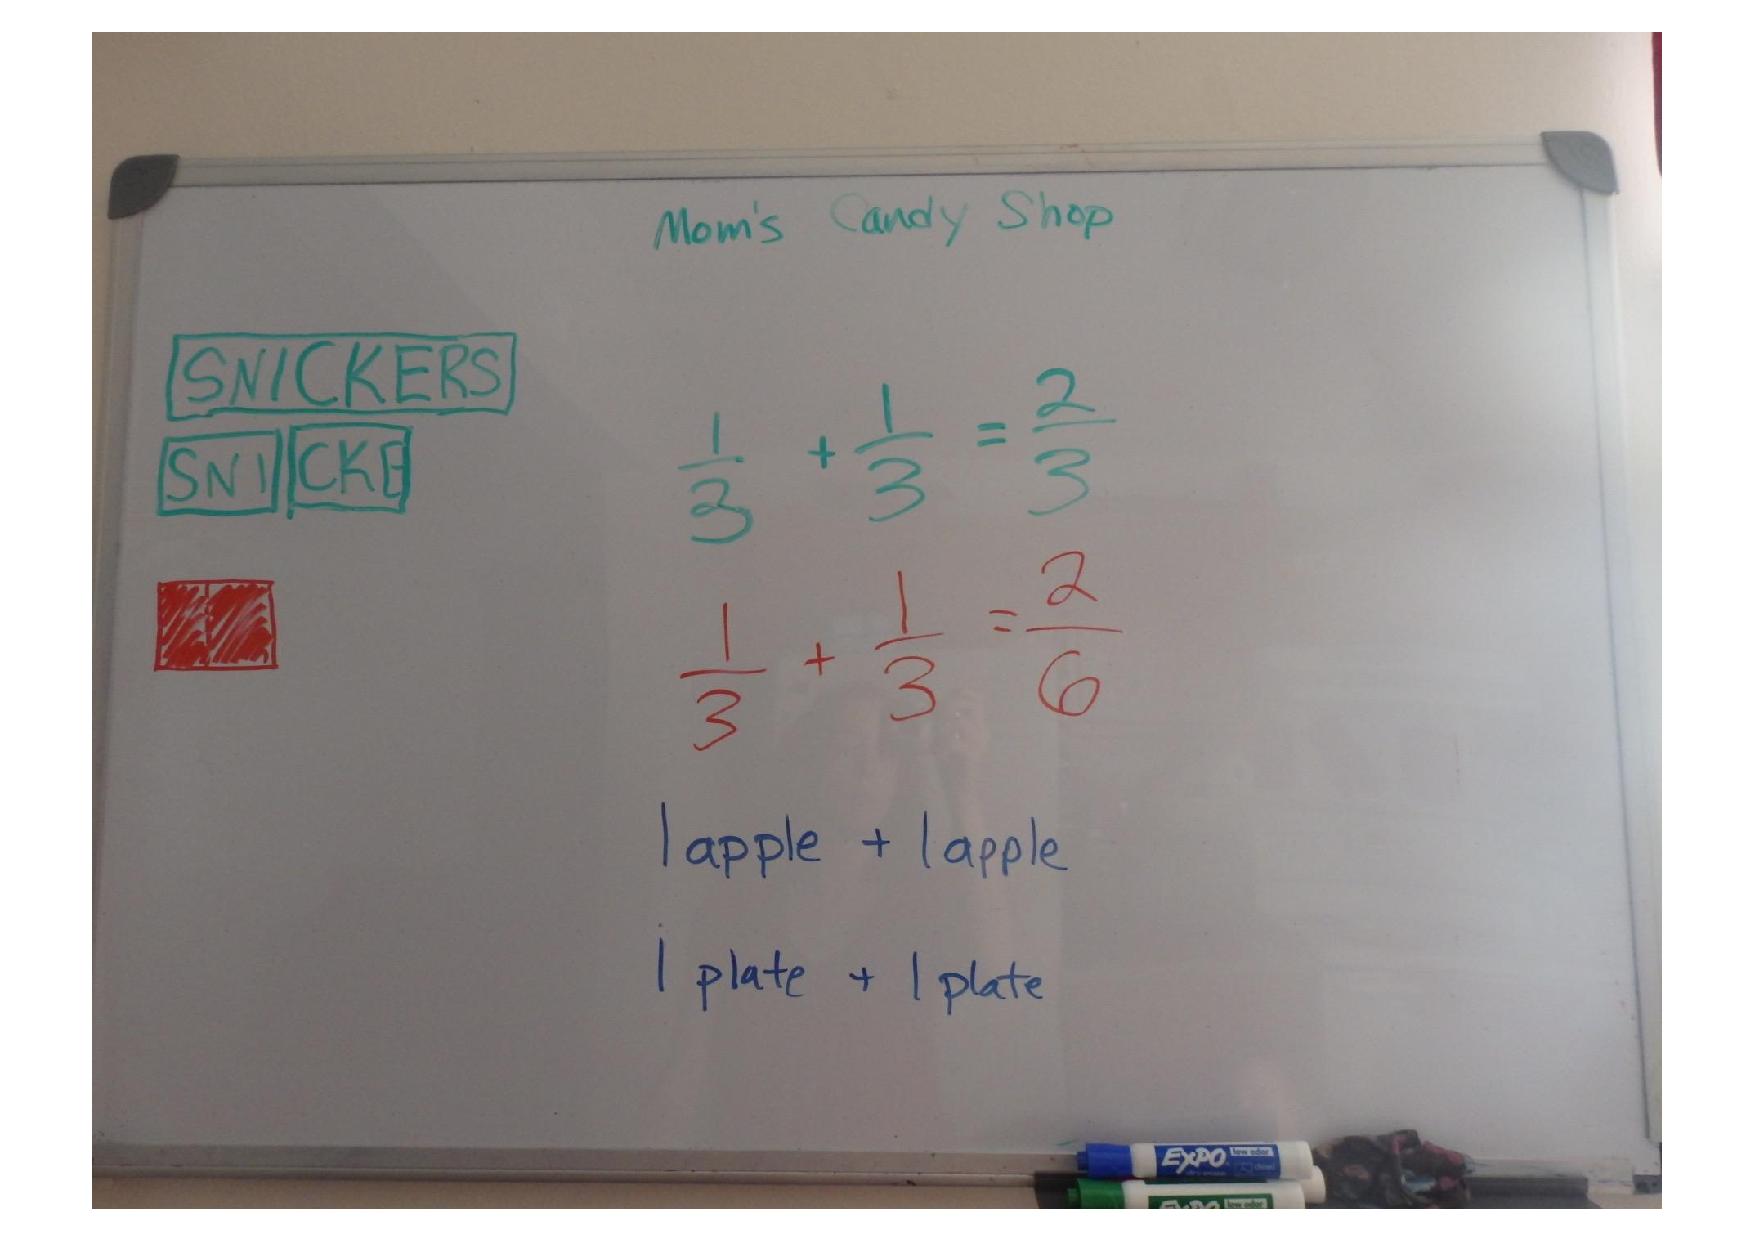 Mom's Candy Shop
SNICKERS
SNI CKE
1/3 + 1/3 = 2/3
1/3 + 1/3 = 2/6
1 apple + 1 apple
1 plate + 1 plate
EXPO low odor
EXPO low odor